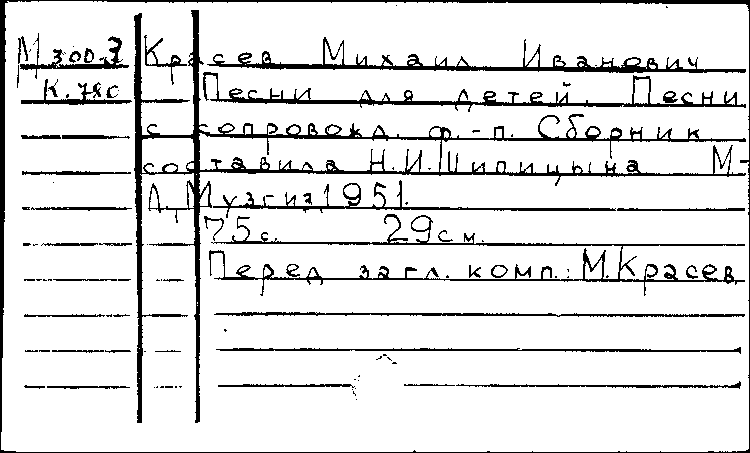 М 300.3 Красев Михаил Иванович
К. 78с Песни для детей. Песни
с сопровожд. ф.-п. Сборник
составила Н.И.Шипицына М-
Л., Музгиз, 1951.
75с. 29см.
Перед загл. комп.: М.Красев.